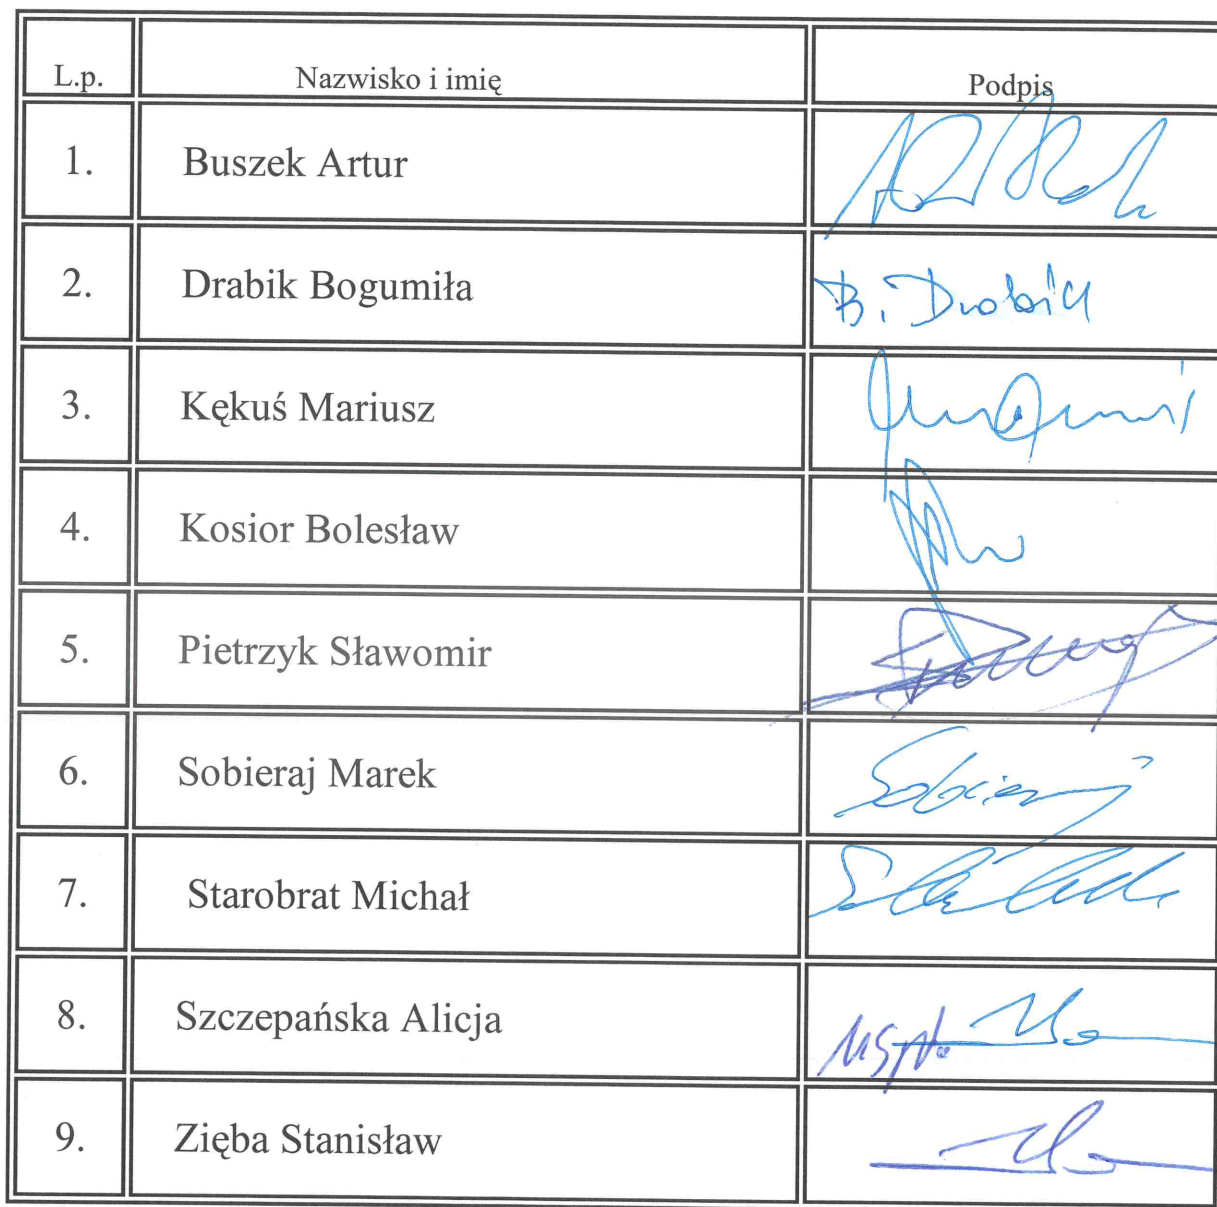 L.p. Nazwisko i imię Podpis
1. Buszek Artur
2. Drabik Bogumiła B. Drabik
3. Kękuś Mariusz
4. Kosior Bolesław
5. Pietrzyk Sławomir
6. Sobieraj Marek Sobieraj
7. Starobrat Michał
8. Szczepańska Alicja
9. Zięba Stanisław